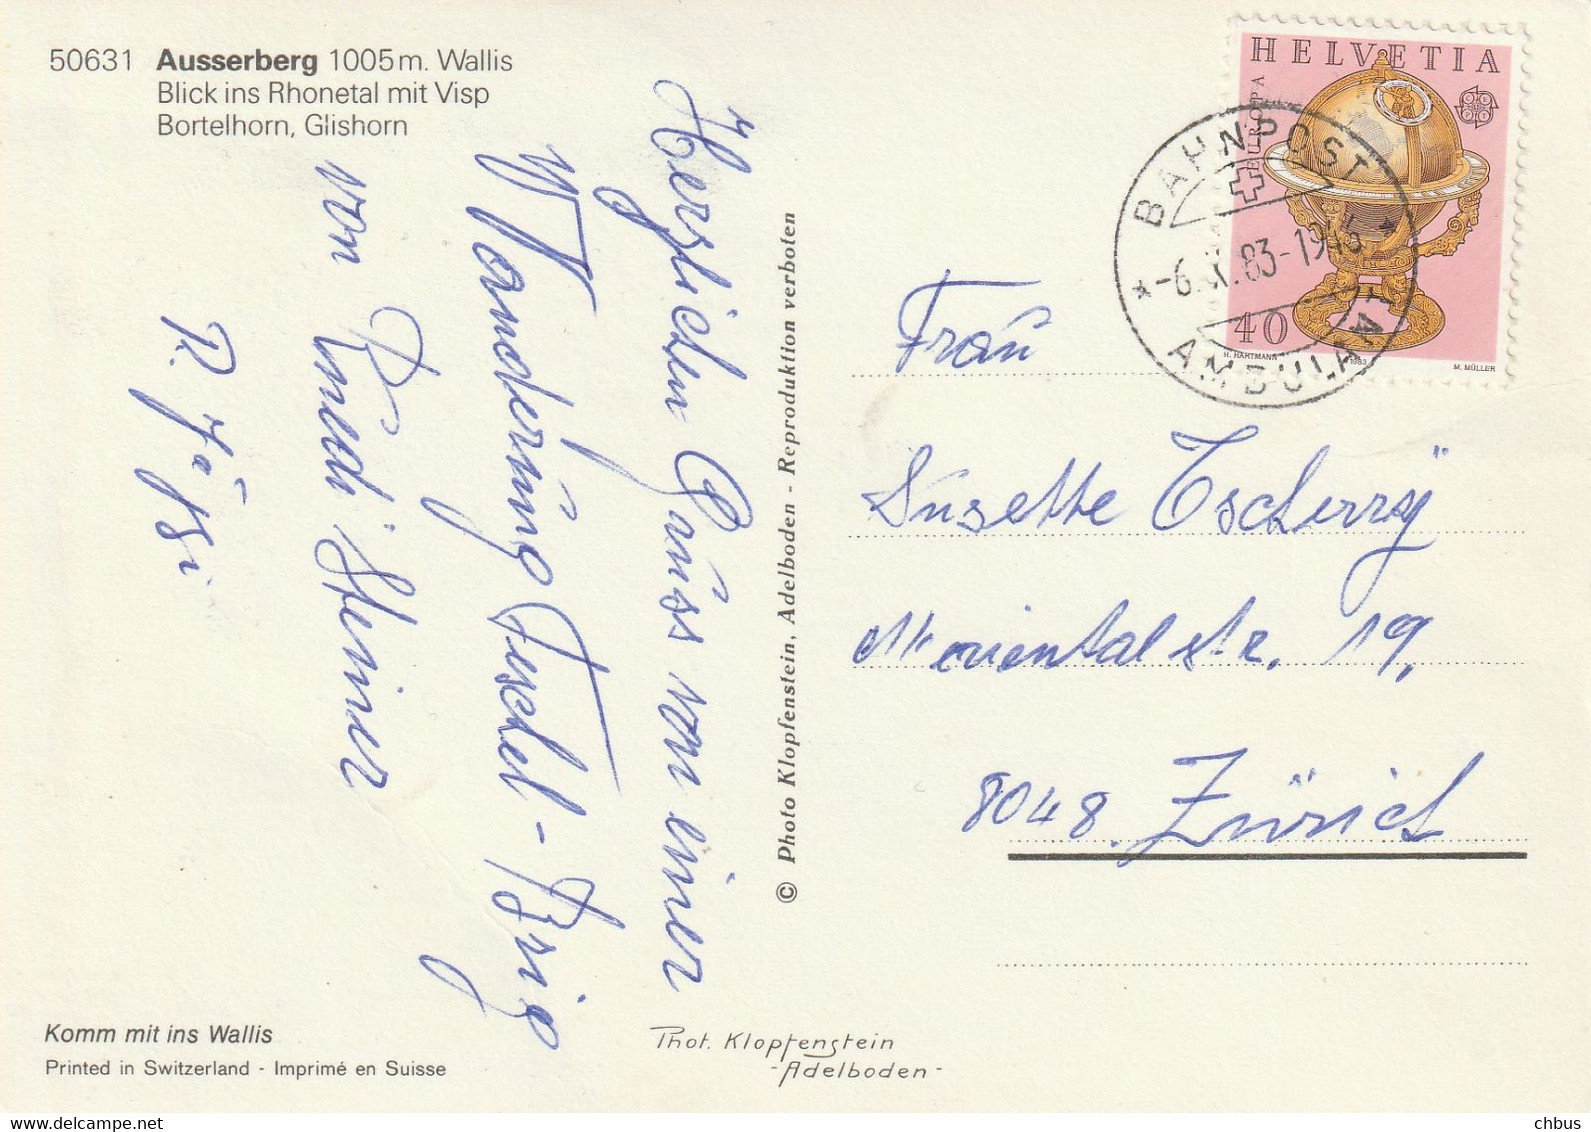 50631 Ausserberg 1005 m. Wallis
Blick ins Rhonetal mit Visp
Bortelhorn, Glishorn
Herzlichen Gruss von einer
Wanderung Fuschel-Brig
von Ruedi Steiner
R. Jäggi
Komm mit ins Wallis
Printed in Switzerland - Imprimé en Suisse
© Photo Klopfenstein, Adelboden - Reproduktion verboten
Phot. Klopfenstein
-Adelboden-
HELVETIA
EUROPA
40
H. HARTMANN
1983
M. MÜLLER
BAHNPOST
-6. .83-19
AMBULANT
Frau
Susette Tscherry
str. 19,
8048 Zürich
chbus